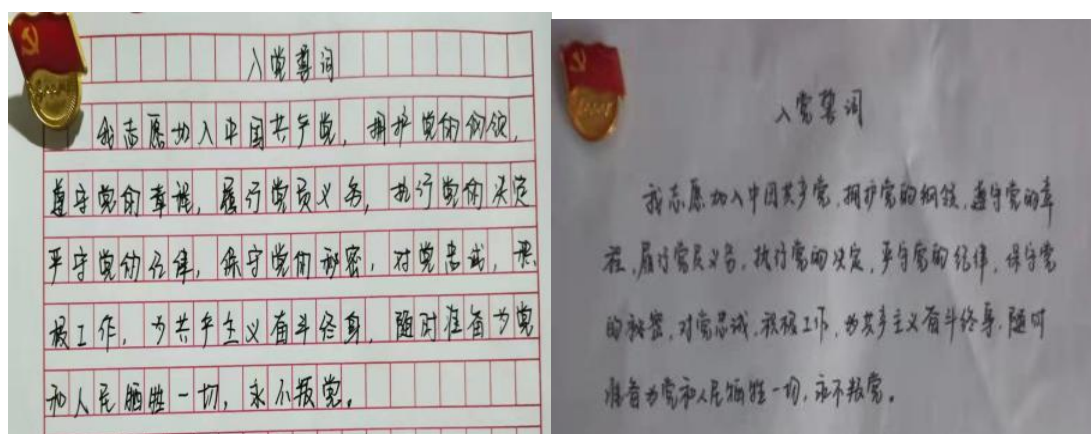 入党誓词
我志愿加入中国共产党，拥护党的纲领，
遵守党的章程，履行党员义务，执行党的决定
严守党的纪律，保守党的秘密，对党忠诚，积
极工作，为共产主义奋斗终身，随时准备为党
和人民牺牲一切，永不叛党。
入党誓词
我志愿加入中国共产党，拥护党的纲领，遵守党的章
程，履行党员义务，执行党的决定，严守党的纪律，保守党
的秘密，对党忠诚，积极工作，为共产主义奋斗终身，随时
准备为党和人民牺牲一切，永不叛党。